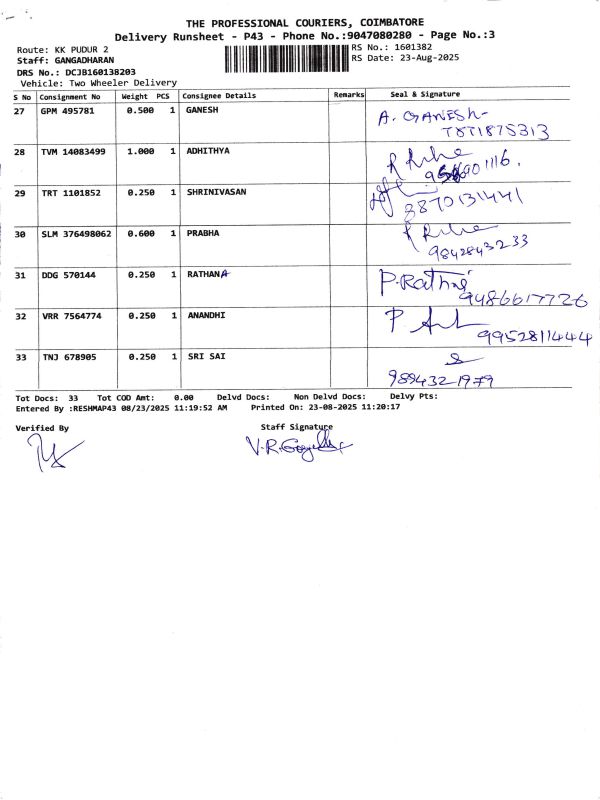 THE PROFESSIONAL COURIERS, COIMBATORE
Delivery Runsheet - P43 - Phone No.:9047080280 - Page No.:3
Route: KK PUDUR 2 RS No.: 1601382
Staff: GANGADHARAN RS Date: 23-Aug-2025
DRS No.: DCJB160138203
Vehicle: Two Wheeler Delivery
S No Consignment No Weight PCS Consignee Details Remarks Seal & Signature
27 GPM 495781 0.500 1 GANESH A. GANESH
28 TVM 14083499 1.000 1 ADHITHYA
29 TRT 1101852 0.250 1 SHRINIVASAN 8870131441
30 SLM 376498062 0.600 1 PRABHA 9842843233
31 DDG 570144 0.250 1 RATHANA P.Rathna 9486617726
32 VRR 7564774 0.250 1 ANANDHI 9952811444
33 TNJ 678905 0.250 1 SRI SAI 9894321979
Tot Docs: 33 Tot COD Amt: 0.00 Delvd Docs: Non Delvd Docs: Delvy Pts:
Entered By :RESHMAP43 08/23/2025 11:19:52 AM Printed On: 23-08-2025 11:20:17
Verified By Staff Signature